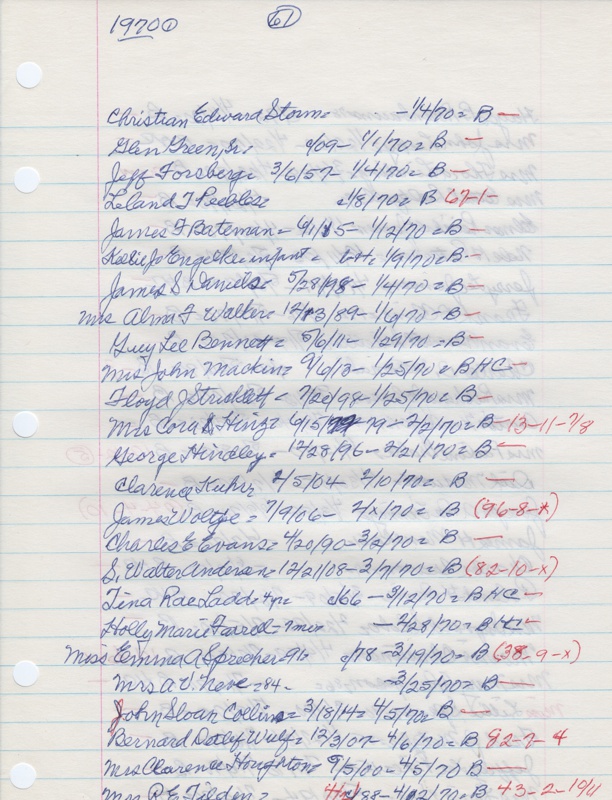 1970① 61
Christian Edward Storm= -1/4/70= B —
Glen Green, Sr. 1/1/70= B —
Jeff Forsberg= 3/6/57- 1/4/70= B —
Leland T Peebles= 1/8/70= B 67-1-
James F Bateman= 1/12/70= B —
Engelke infant= 1/9/70= B —
James S Daniels= 5/28/98- 1/4/70= B —
Mrs Alma F Walker= 12/13/89- 1/6/70= B —
Lucy Lee Bennett= 5/6/11- 1/29/70= B —
Mrs John Mackin= 1/25/70= B HC —
Floyd J Stricklett= 7/20/98- 1/25/70= B —
Mrs Cora Hinz= 6/15/79 79 - 2/2/70= B -(3-11-7/8
George Hindley= 12/28/96- 2/21/70= B —
Clarence Kuhn 2/5/04 2/10/70= B —
James Woltze= 7/9/06- 2/x/70= B (96-8-*)
Charles E Evans= 4/20/90-3/2/70= B —
S. Walter Anderson= 12/21/08- 3/7/70= B (82-10-x)
Tina Rae Ladd= 4 yr= d66 - 3/12/70= B HC —
Holly Marie - 2/28/70= B HC —
Miss Emma A Sprocher= 91= d78 -3/19/70= B (38-9-x)
Mrs A V. Neve =84- -3/25/70= B —
John Sloan Collins= 3/18/14= 4/5/70= B —
Bernard Detlef Wulf= 12/3/07- 4/6/70= B 82-2-4
Mrs Clarence Houghton= 9/5/00- 4/5/70 B —
Mrs R E Tilden= 88- 70= B 43-2-